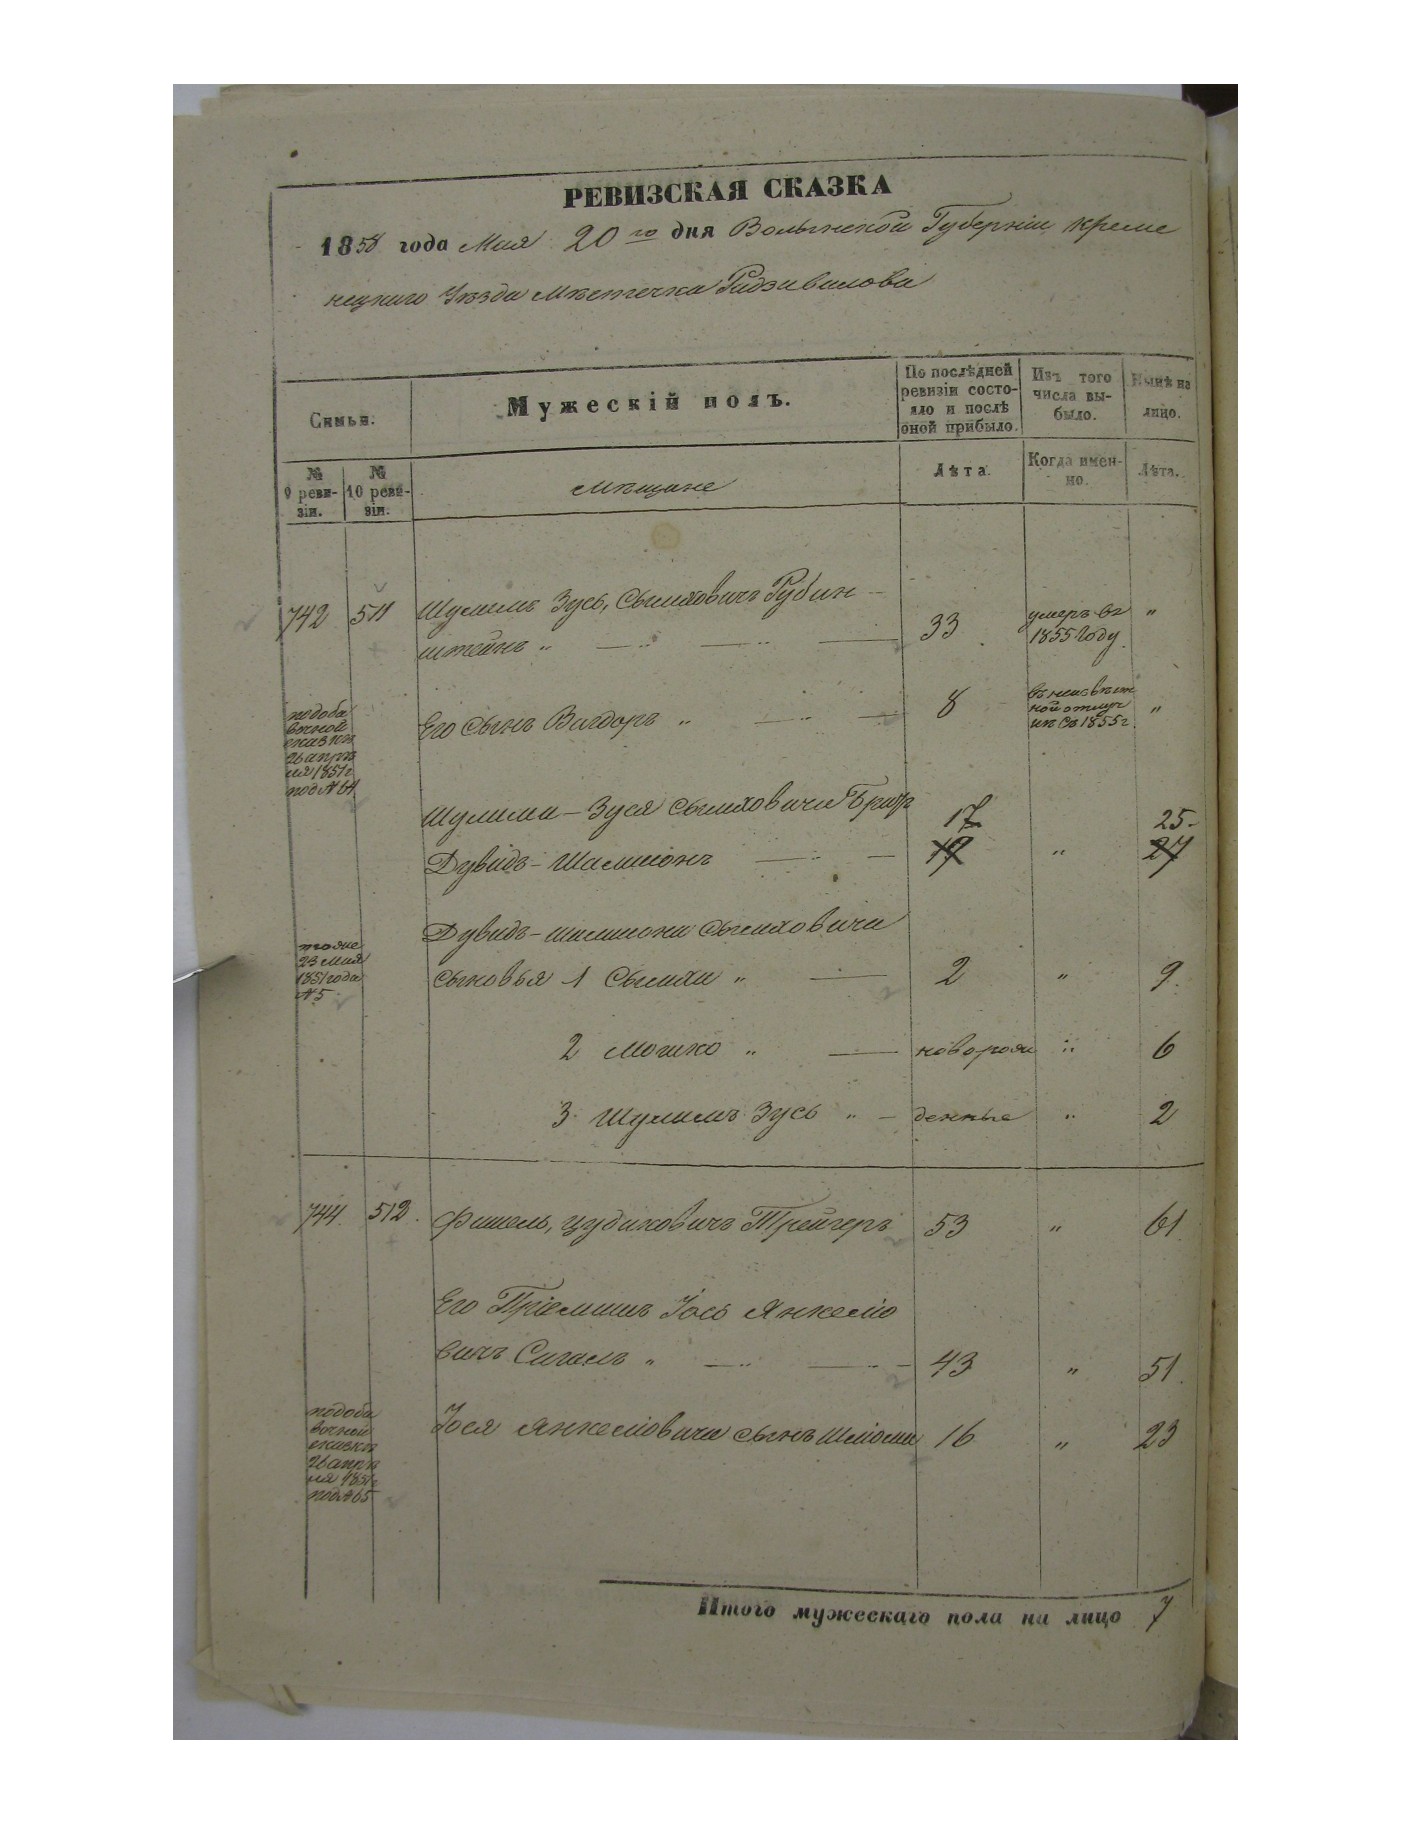 РЕВИЗСКАЯ СКАЗКА
1858 года Мая 20го дня Волынской Губерніи Креме
нецкаго Уѣзда Мѣстечка Радзивилова
Симьи.
Мужескій полъ.
По послѣдней
ревизіи состо-
яло и послѣ
оной прибыло.
Изъ того
числа вы-
было.
Нынѣ на
лицо.
№
9 реви-
зіи.
№
10 реви-
зіи.
мѣщане
Лѣта.
Когда имен-
но.
Лѣта.
742 511 Шулимъ Зусь, Сымховичъ Рубин
штейнъ „ 33 умеръ въ
1855 Году „
подоба
вочной
сказки
26 апрѣ
ля 1851 г
под № 64
Его Сынъ Вигдоръ „ 8 въ неизвѣст
ной отлуч
кѣ съ 1855 г „
Шулима - Зуся Сымховича Братъ 17 25
Дувидъ - Шамшонъ 19 „ 27
тоже
23 Мая
1851 года
№ 5
Дувидъ - шамшона Сымховича
сыновья 1 Сымха „ 2 „ 9
2 Мошко „ новорож „ 6
3 Шулимъ Зусь „ денные „ 2
744 512 Фишель, Цудиковичъ Трейгеръ 53 „ 61
Его Пріемышъ Іось Янкеліо
вичъ Сигалъ „ 43 „ 51
подоба
вочной
сказки
26 апрѣ
ля 1851 г
под № 65
Іося Янкеліовича сынъ Шліома 16 „ 23
Итого мужескаго пола на лицо 7